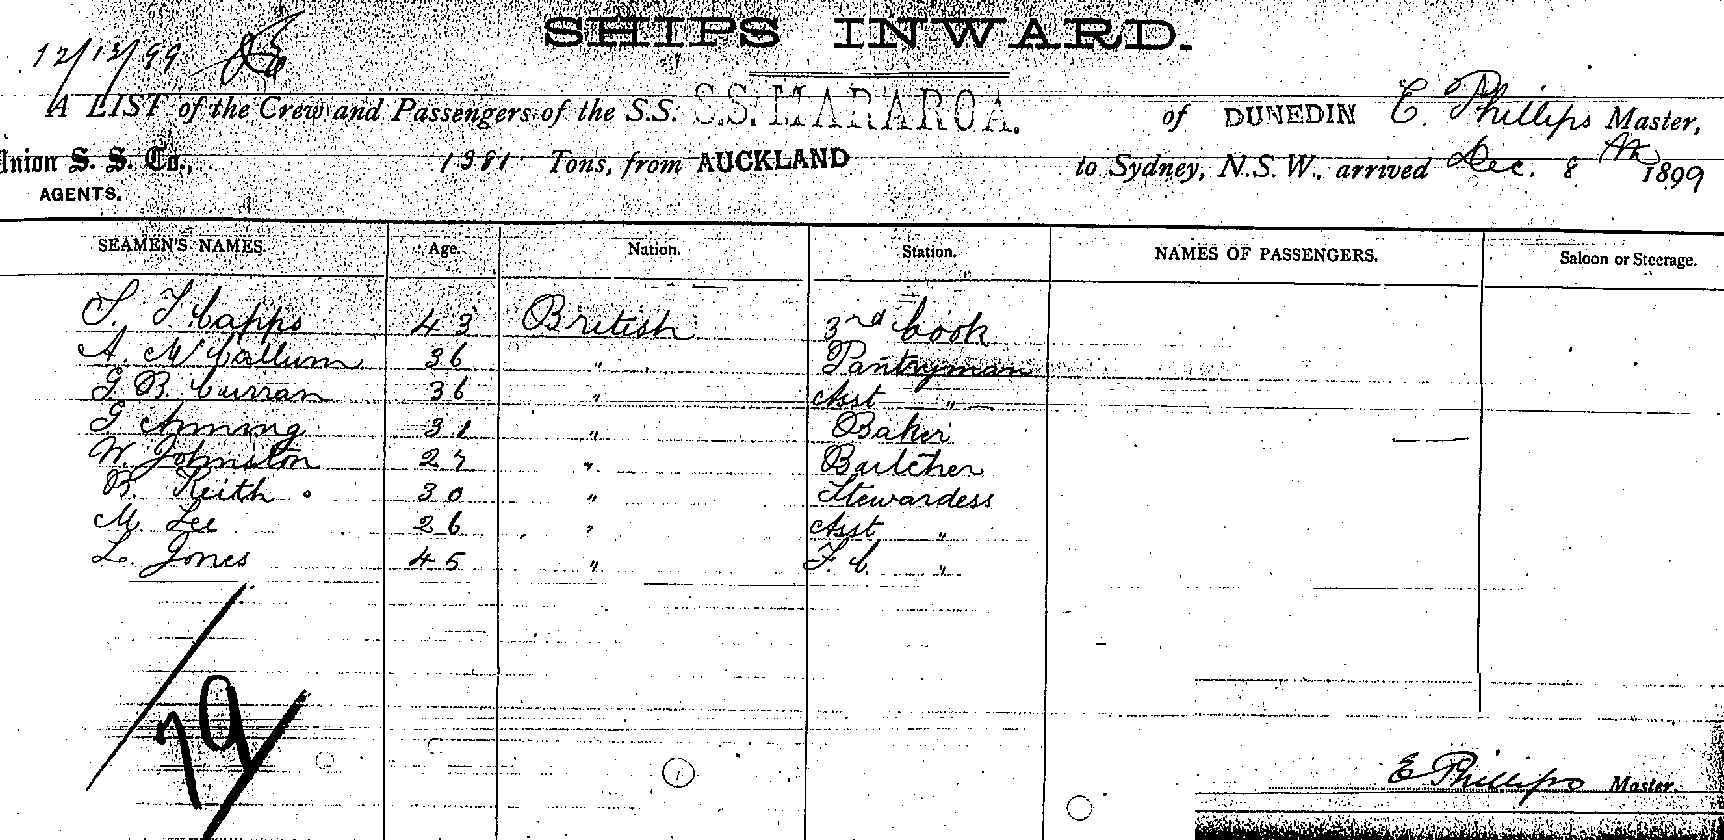 SHIPS INWARD.
12/12/99
A LIST of the Crew and Passengers of the S.S. S.S. MARAROA. of DUNEDIN E. Phillips Master,
Union S. S. Co., 1381 Tons, from AUCKLAND to Sydney, N.S.W., arrived Dec. 8th 1899
AGENTS.
SEAMEN'S NAMES. Age. Nation. Station. NAMES OF PASSENGERS. Saloon or Steerage.
S. F. Capps 43 British 3rd Cook
A. McCallum 36 " Pantryman
G B. Curran 36 " Asst "
G Anning 31 " Baker
W. Johnston 27 " Butcher
B. Keith 30 " Stewardess
M. Lee 26 " Asst "
L. Jones 45 " F. C. "
79
E Phillips Master.